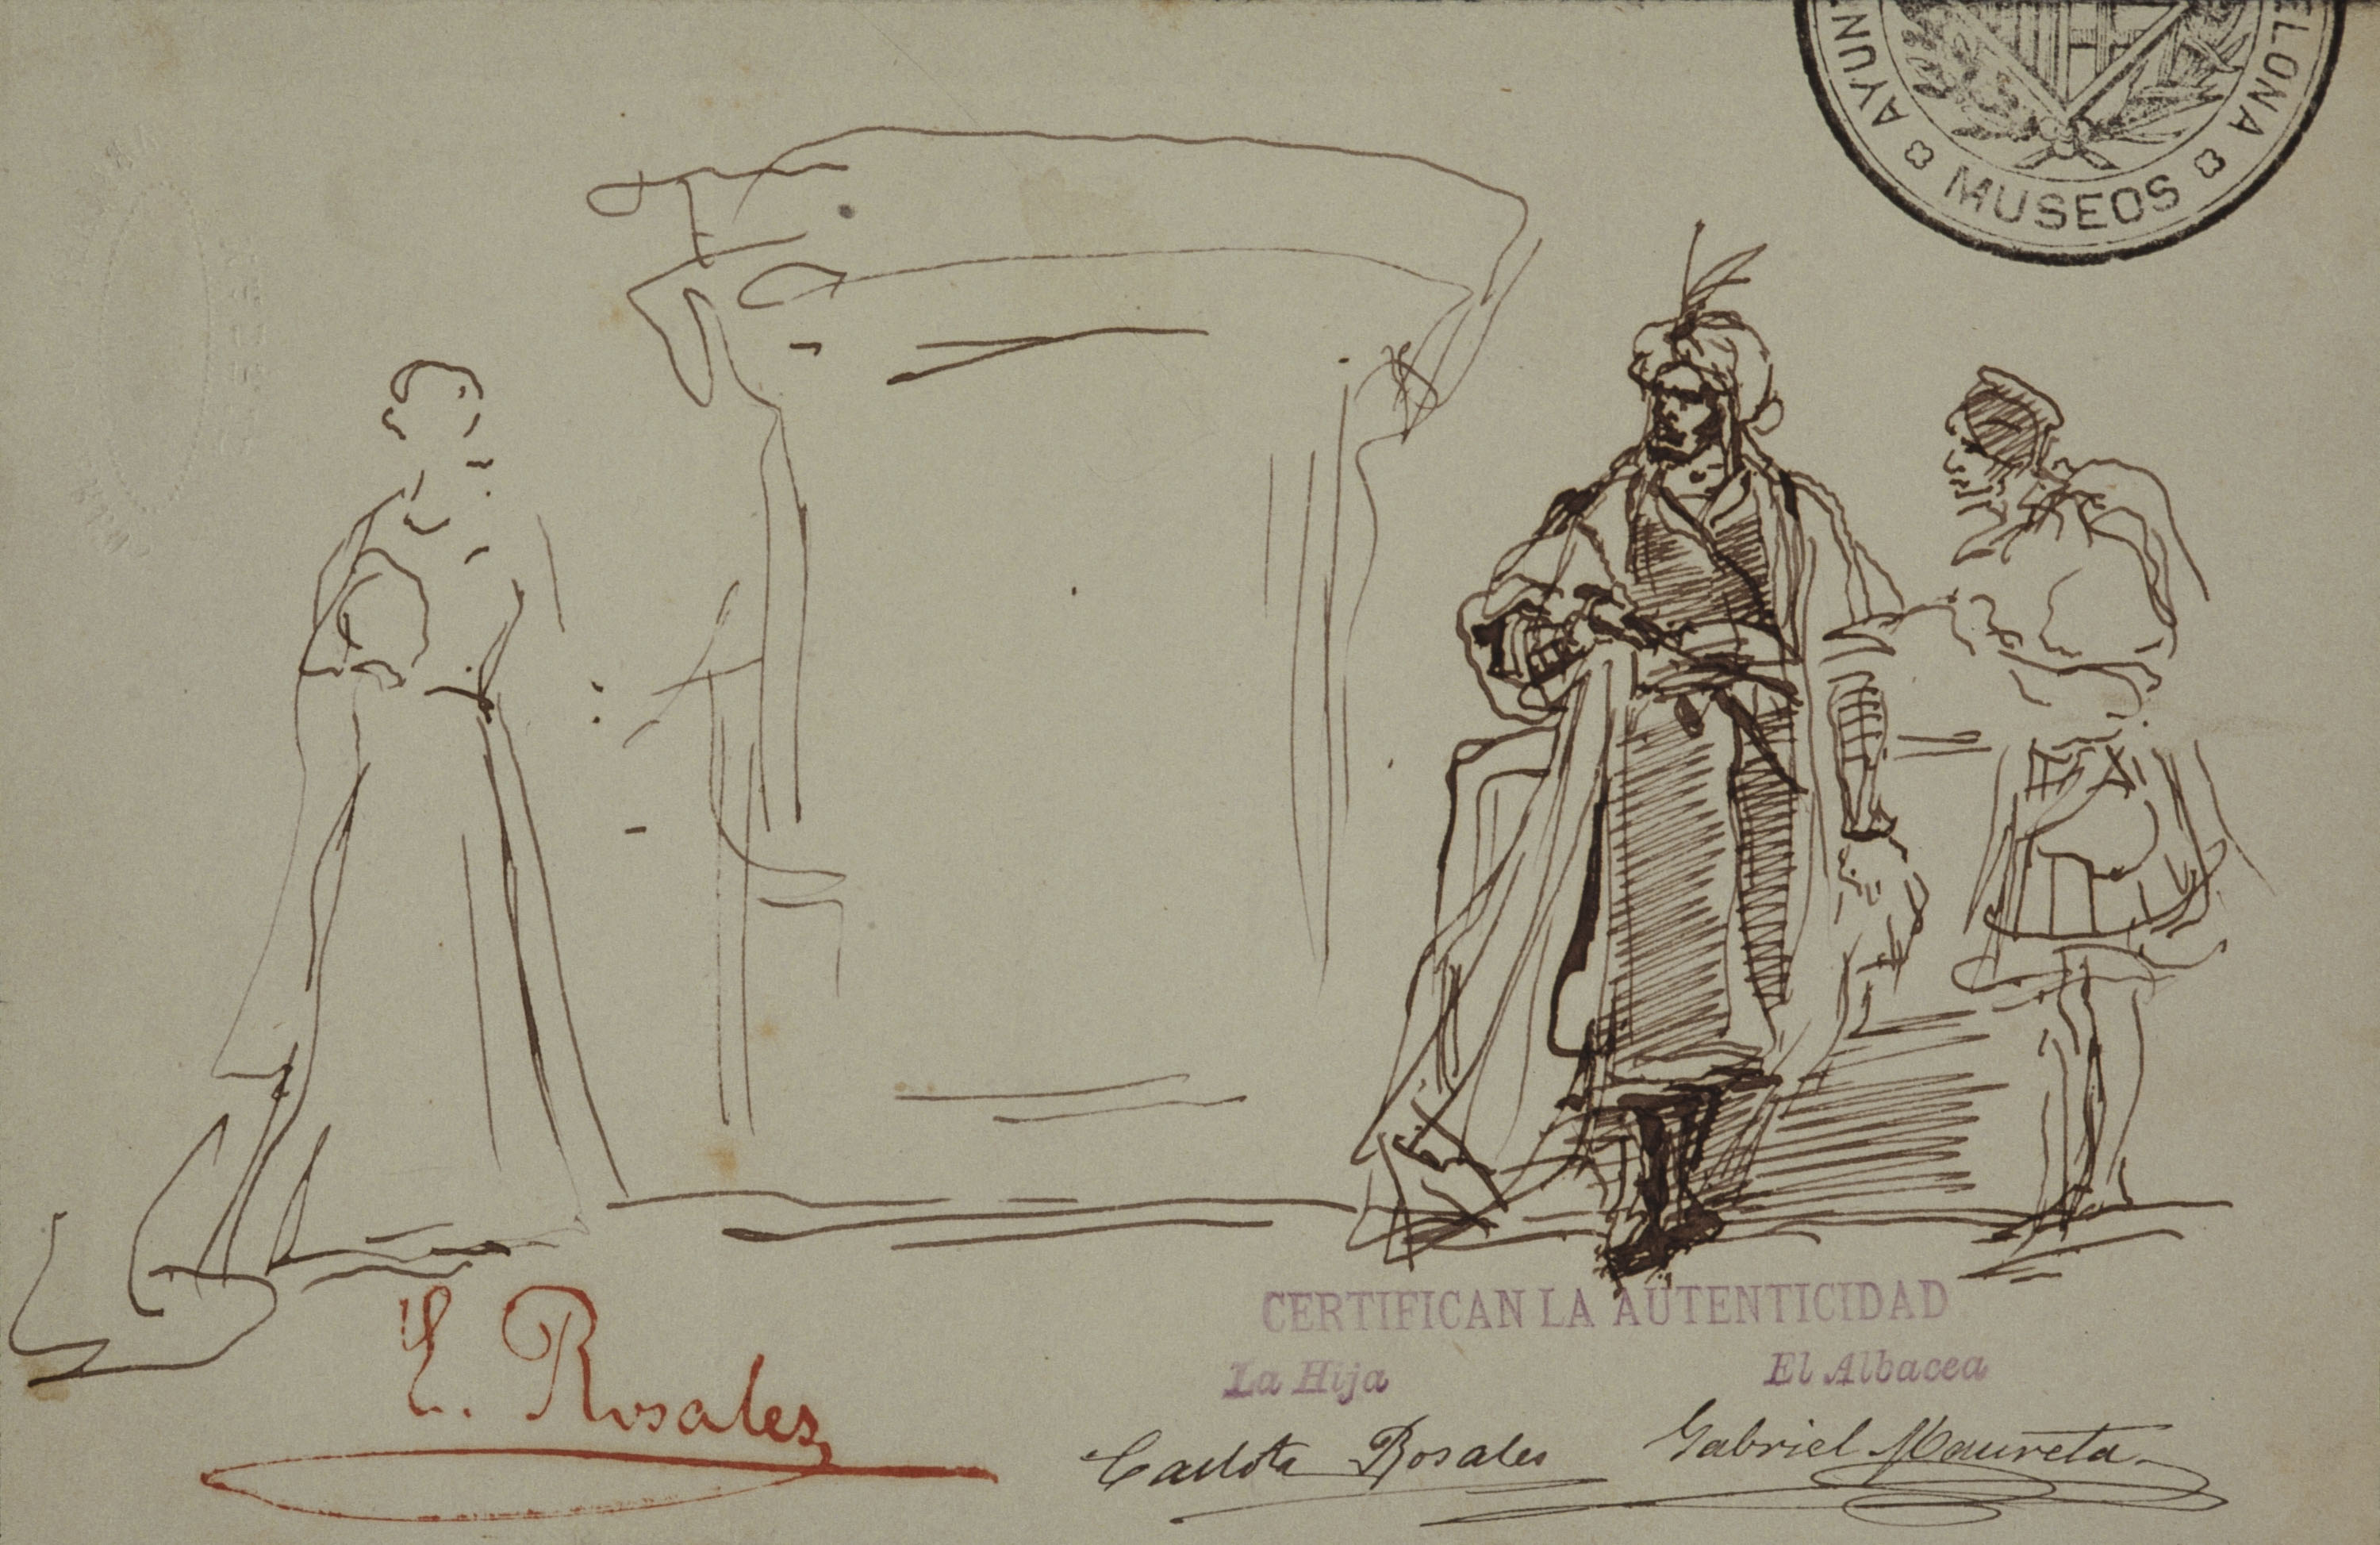 AYUN
ELONA
MUSEOS
E. Rosales
CERTIFICAN LA AUTENTICIDAD
La Hija
El Albacea
Carlota Rosales
Gabriel Maureta